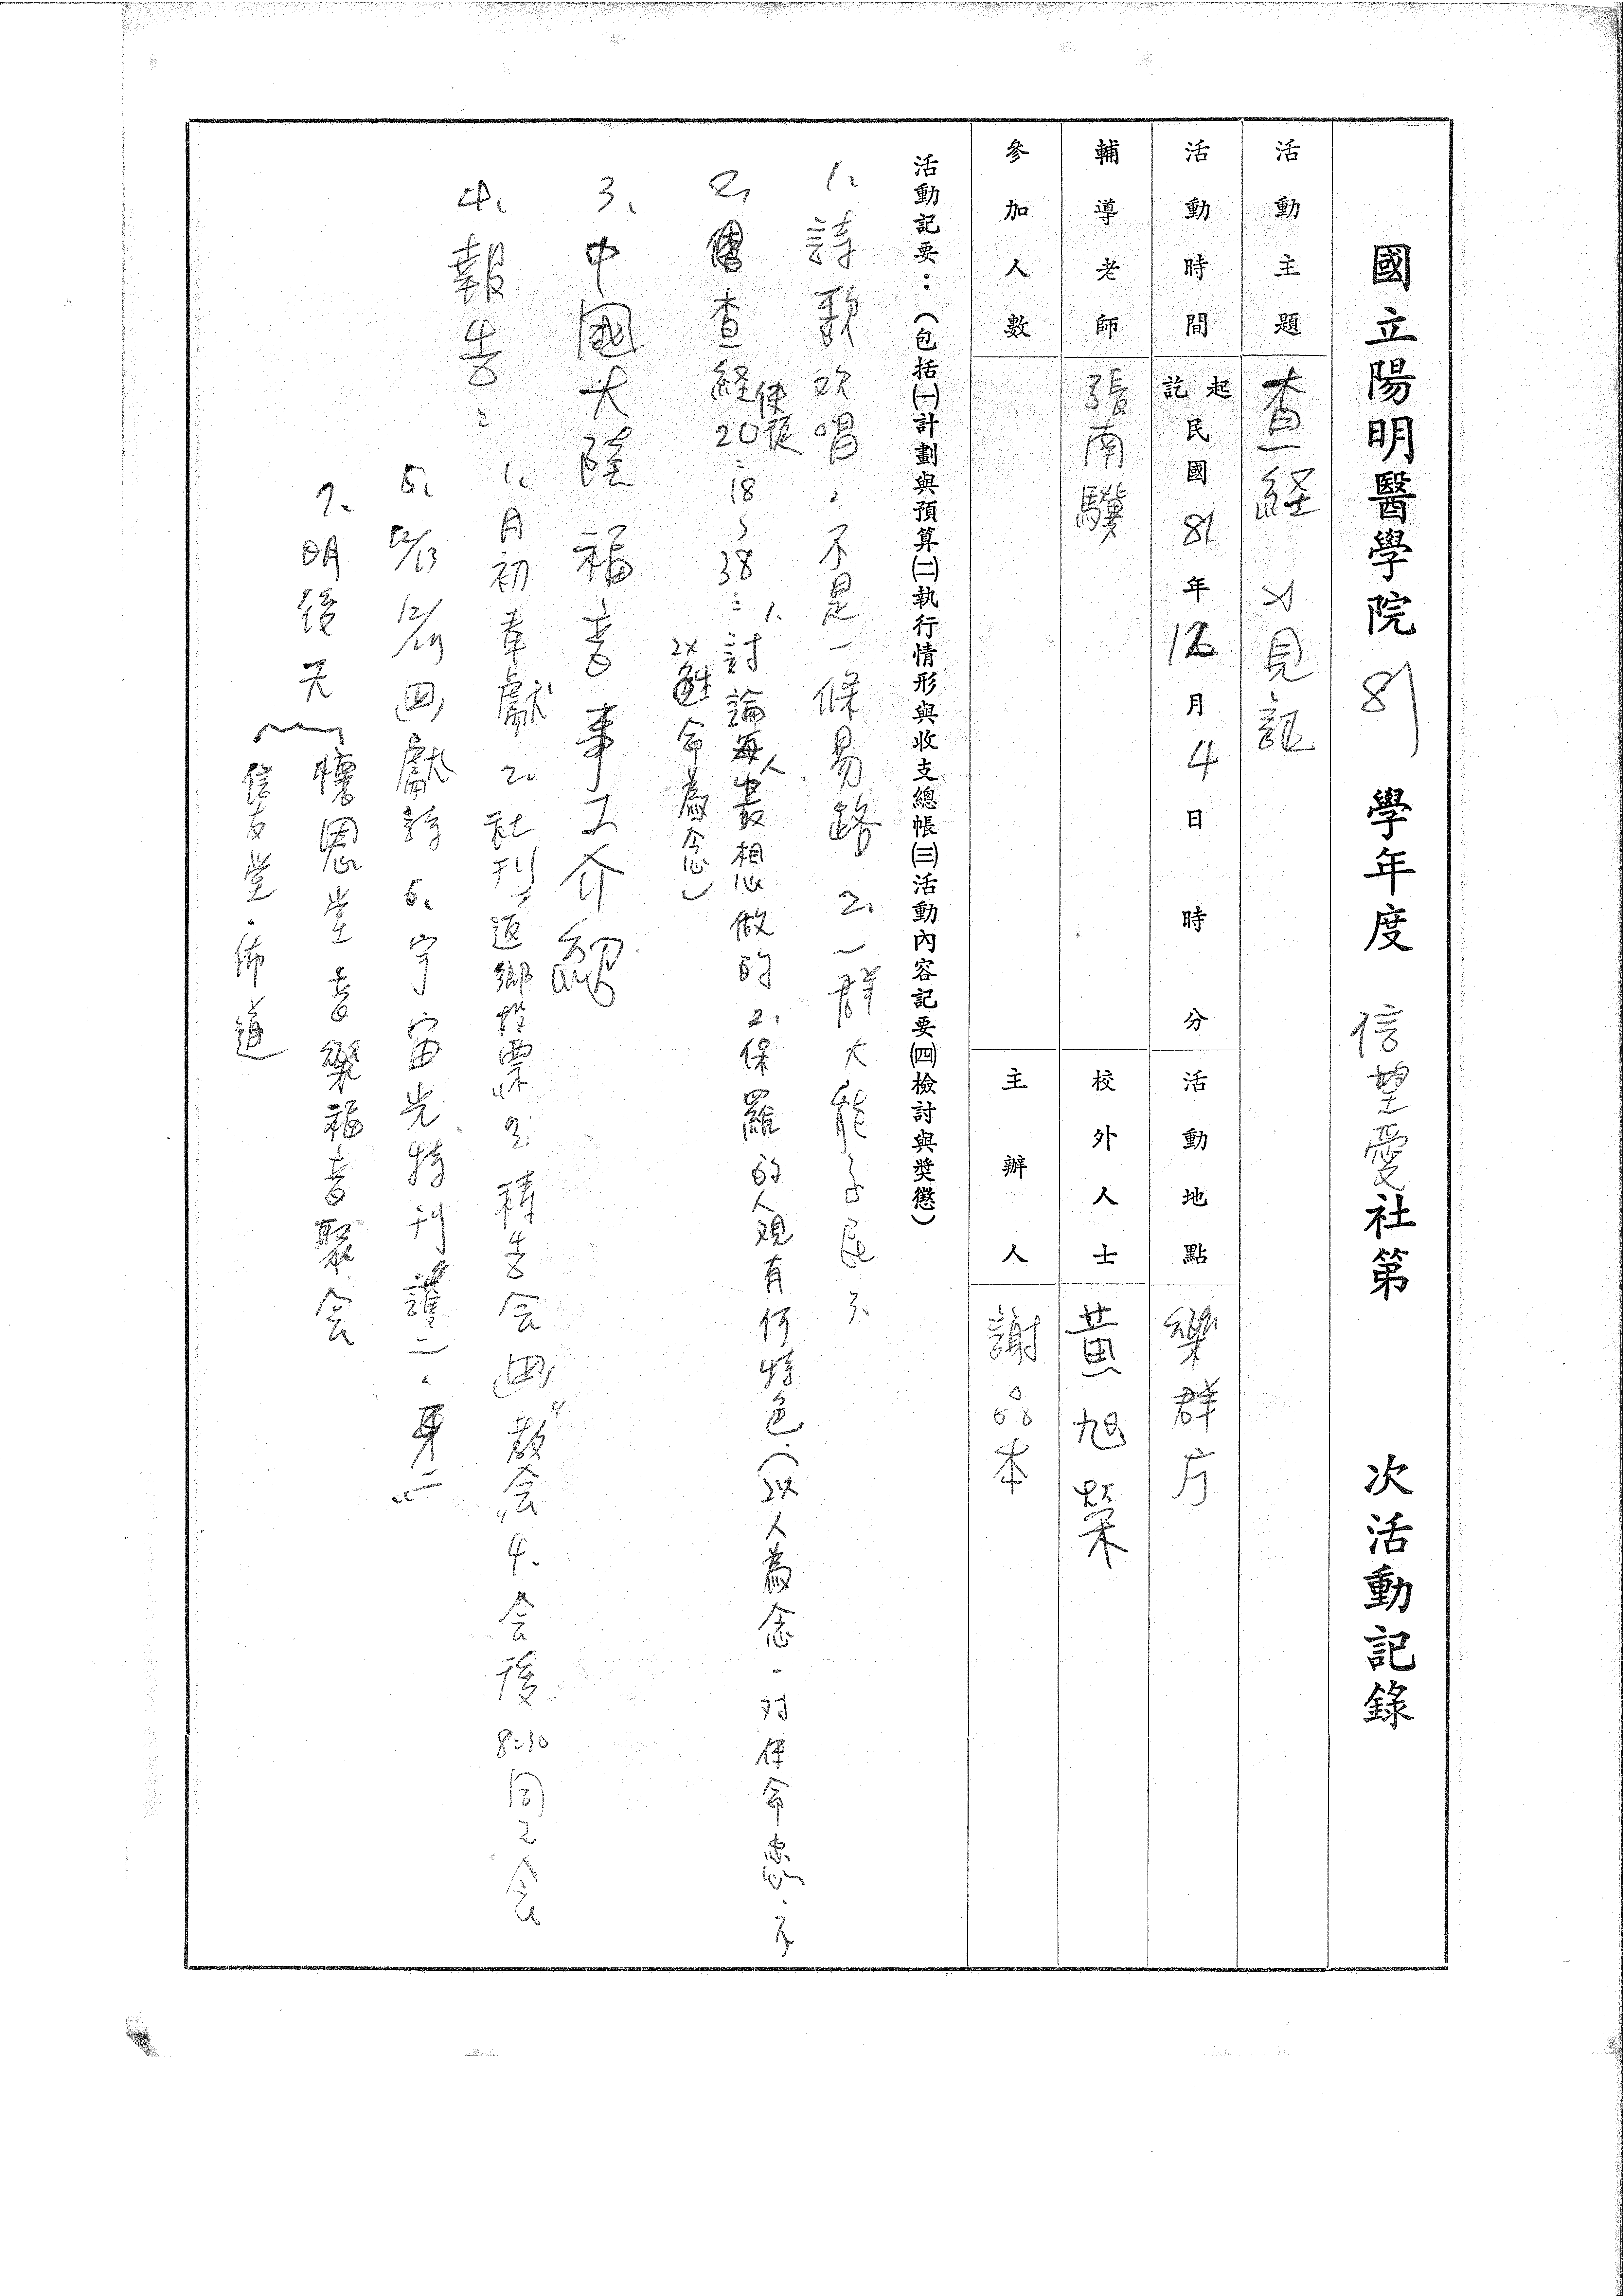 國立陽明醫學院 81 學年度 信望愛社第 次活動記錄
活動主題 查經 見証
活動時間 起訖 民國81年12月4日 時 分 活動地點 樂群廳
輔導老師 張南驥 校外人士 黃旭榮
參加人數 主辦人 謝品本
活動記要：（包括㈠計劃與預算㈡執行情形與收支總帳㈢活動內容記要㈣檢討與獎懲）
1、詩歌欢唱：不是一條易路 2、一群大能子民 3、
2、查經 使徒20：18～38：1、討論每人最想做的 2、保羅的人观有何特色（以人為念、对使命忠心、不
以性命為念）
3、中國大陸福音事工介紹
4、報告： 1、月初奉獻 2、社刊"返鄉投票" 3、禱告会(四)"教会" 4、会後8：30同工会
5、12/13 (四)獻詩 6、宇宙光特刊
7、明後天 懷恩堂音樂福音聚会
信友堂、佈道